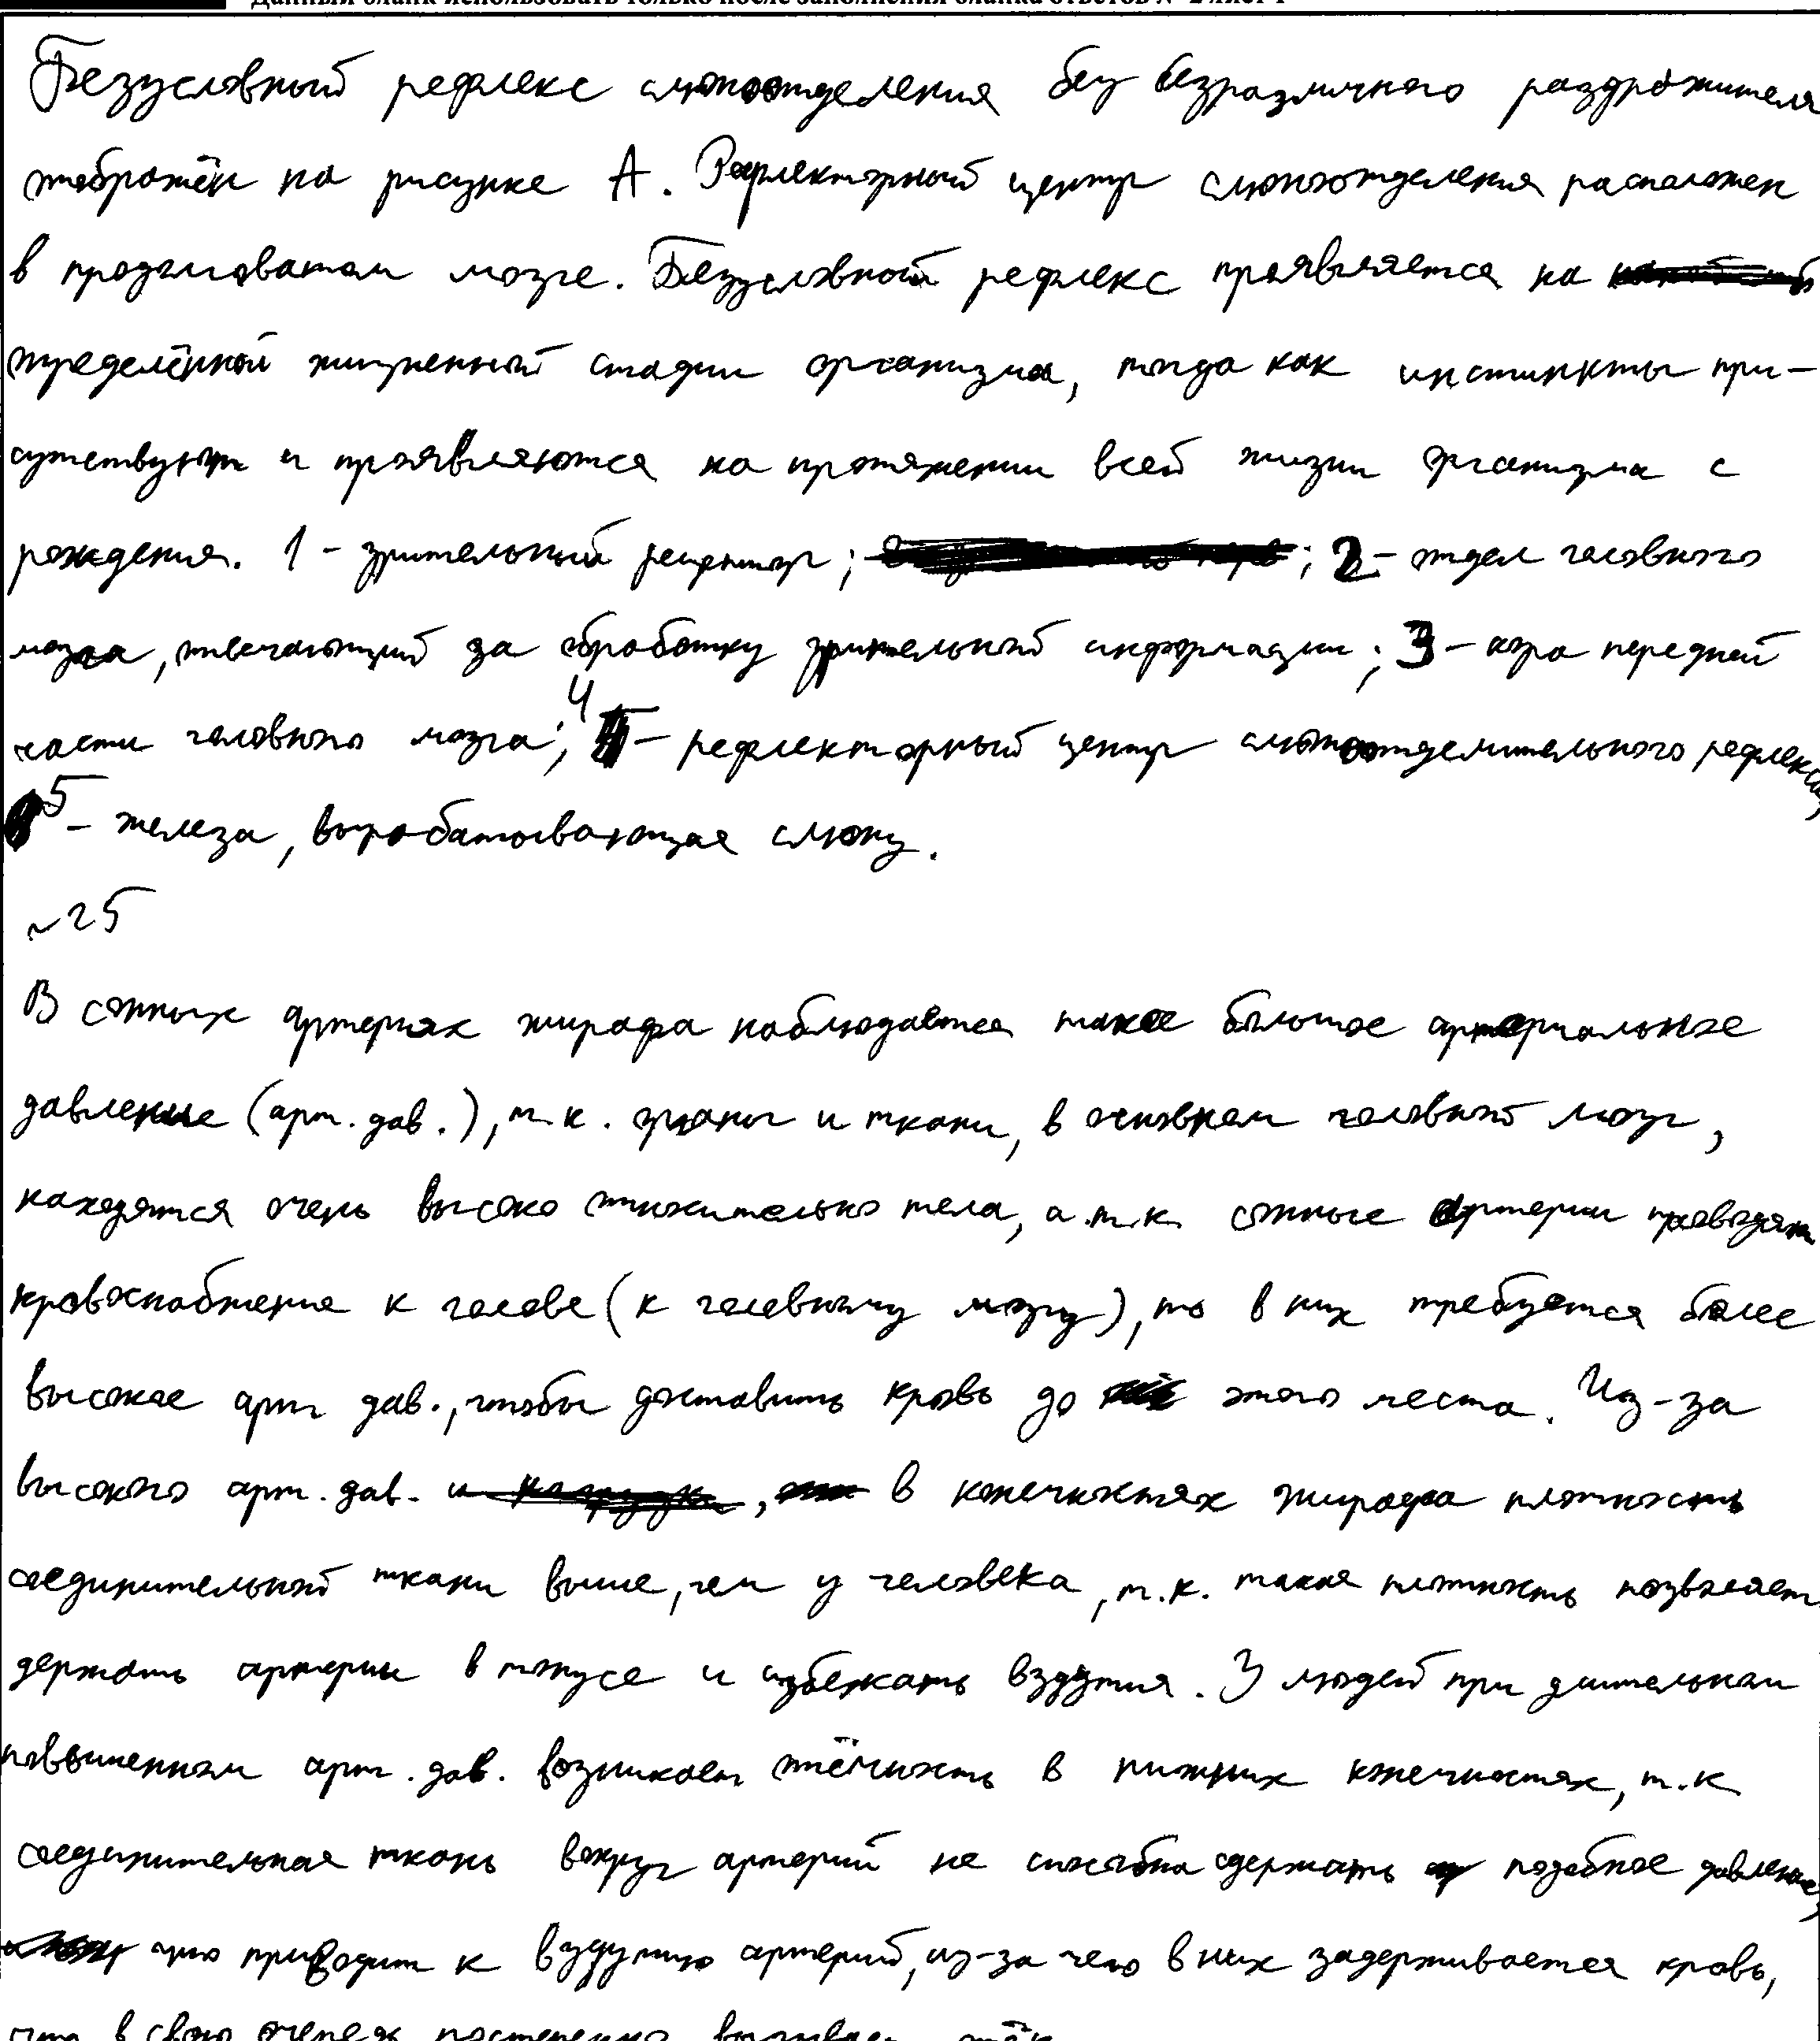 Данный бланк использовать только после заполнения бланка ответов № 2 лист 1
Безусловный рефлекс слюноотделения без безразличного раздрожителя
изображён на рисунке А. Рефлекторный центр слюноотделения расположен
в продолговатом мозге. Безусловный рефлекс проявляется на
определённой жизненной стадии организма, тогда как инстинкты при-
сутствуют и проявляются на протяжении всей жизни организма с
рождения. 1 - зрительный рецептор; ; 2 - отдел головного
мозга, отвечающий за обработку зрительной информации; 3 - кора передней
части головного мозга; 4 - рефлекторный центр слюноотделительного рефлекса;
5 - железа, вырабатывающая слюну.
~25
В сонных артериях жирафа наблюдается такое большое артериальное
давление (арт. дав.), т.к. органы и ткани, в основном головной мозг,
находятся очень высоко относительно тела, а т.к. сонные артерии проводят
кровоснабжение к голове (к головному мозгу), то в них требуется более
высокое арт дав., чтобы доставить кровь до этого места. Из-за
высокого арт. дав. , в конечностях жирафа плотность
соединительной ткани выше, чем у человека, т.к. такая плотность позволяет
держать артерии в тонусе и избежать вздутия. У людей при длительном
повышенном арт. дав. возникает отёчность в нижних конечностях, т.к
соединительная ткань вокруг артерий не способна сдержать подобное давление,
что приводит к вздутию артерий, из-за чего в них задерживается кровь,
что в свою очередь постепенно вызывает отёк